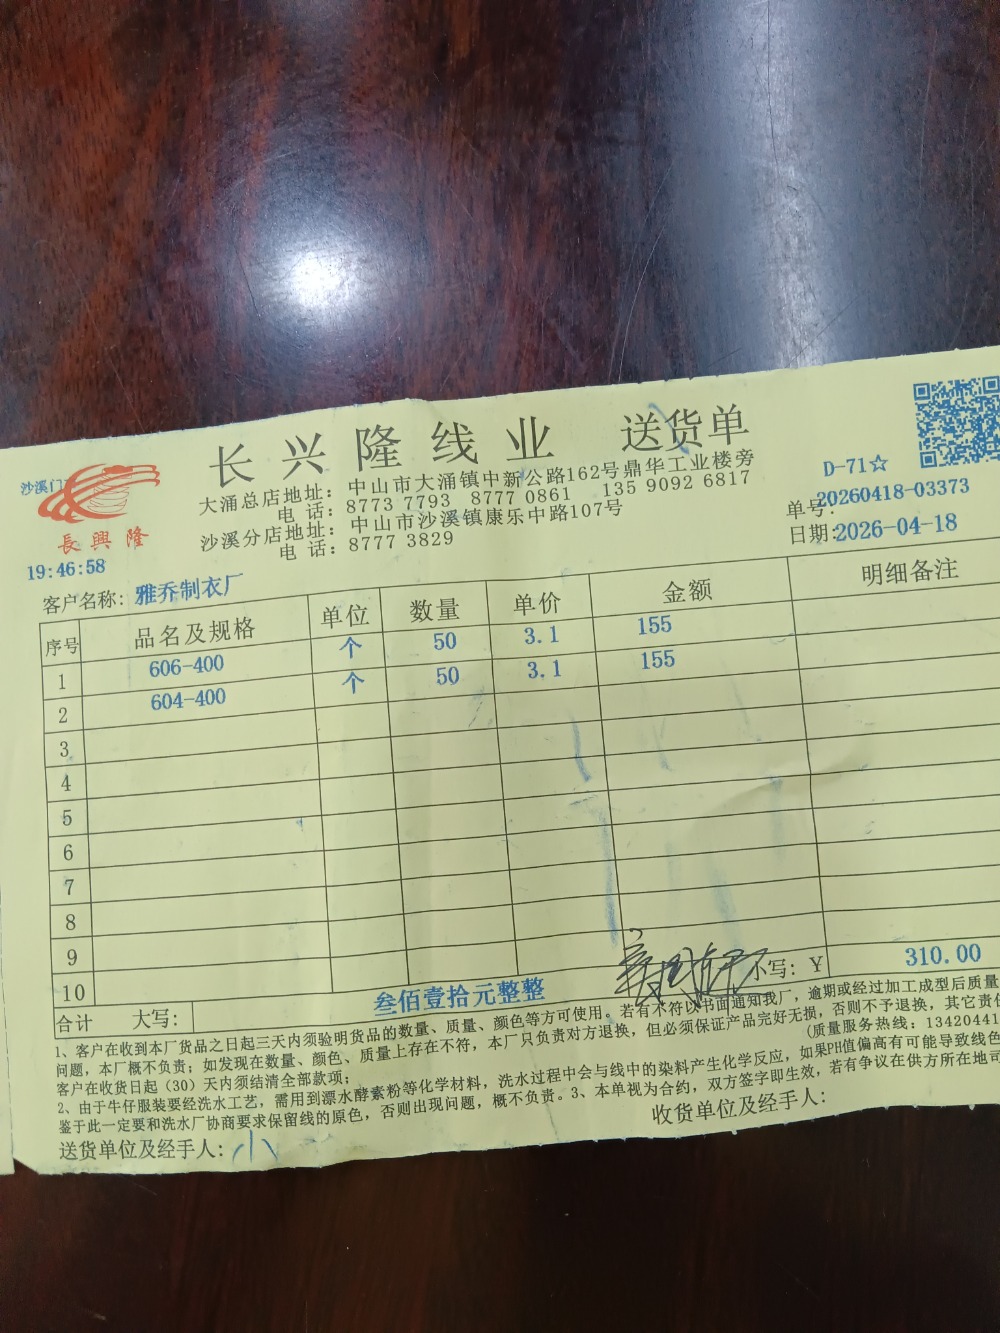 长兴隆线业 送货单
沙溪门
長興隆
大涌总店地址：中山市大涌镇中新公路162号鼎华工业楼旁
电 话：8773 7793 8777 0861 135 9092 6817
沙溪分店地址：中山市沙溪镇康乐中路107号
电 话：8777 3829
D-71☆
单号:20260418-03373
日期:2026-04-18
19:46:58
客户名称: 雅乔制衣厂
序号 品名及规格 单位 数量 单价 金额 明细备注
1 606-400 个 50 3.1 155
2 604-400 个 50 3.1 155
3
4
5
6
7
8
9
10
合计 大写: 叁佰壹拾元整整 小写: Y 310.00
1、客户在收到本厂货品之日起三天内须验明货品的数量、质量、颜色等方可使用。若有不符以书面通知我厂，逾期或经过加工成型后质量
问题，本厂概不负责；如发现在数量、颜色、质量上存在不符，本厂只负责对方退换，但必须保证产品完好无损，否则不予退换，其它责任
客户在收货日起（30）天内须结清全部款项； (质量服务热线：13420441
2、由于牛仔服装要经洗水工艺，需用到漂水酵素粉等化学材料，洗水过程中会与线中的染料产生化学反应，如果PH值偏高有可能导致线色
鉴于此一定要和洗水厂协商要求保留线的原色，否则出现问题，概不负责。3、本单视为合约，双方签字即生效，若有争议在供方所在地司
送货单位及经手人: 小 收货单位及经手人: